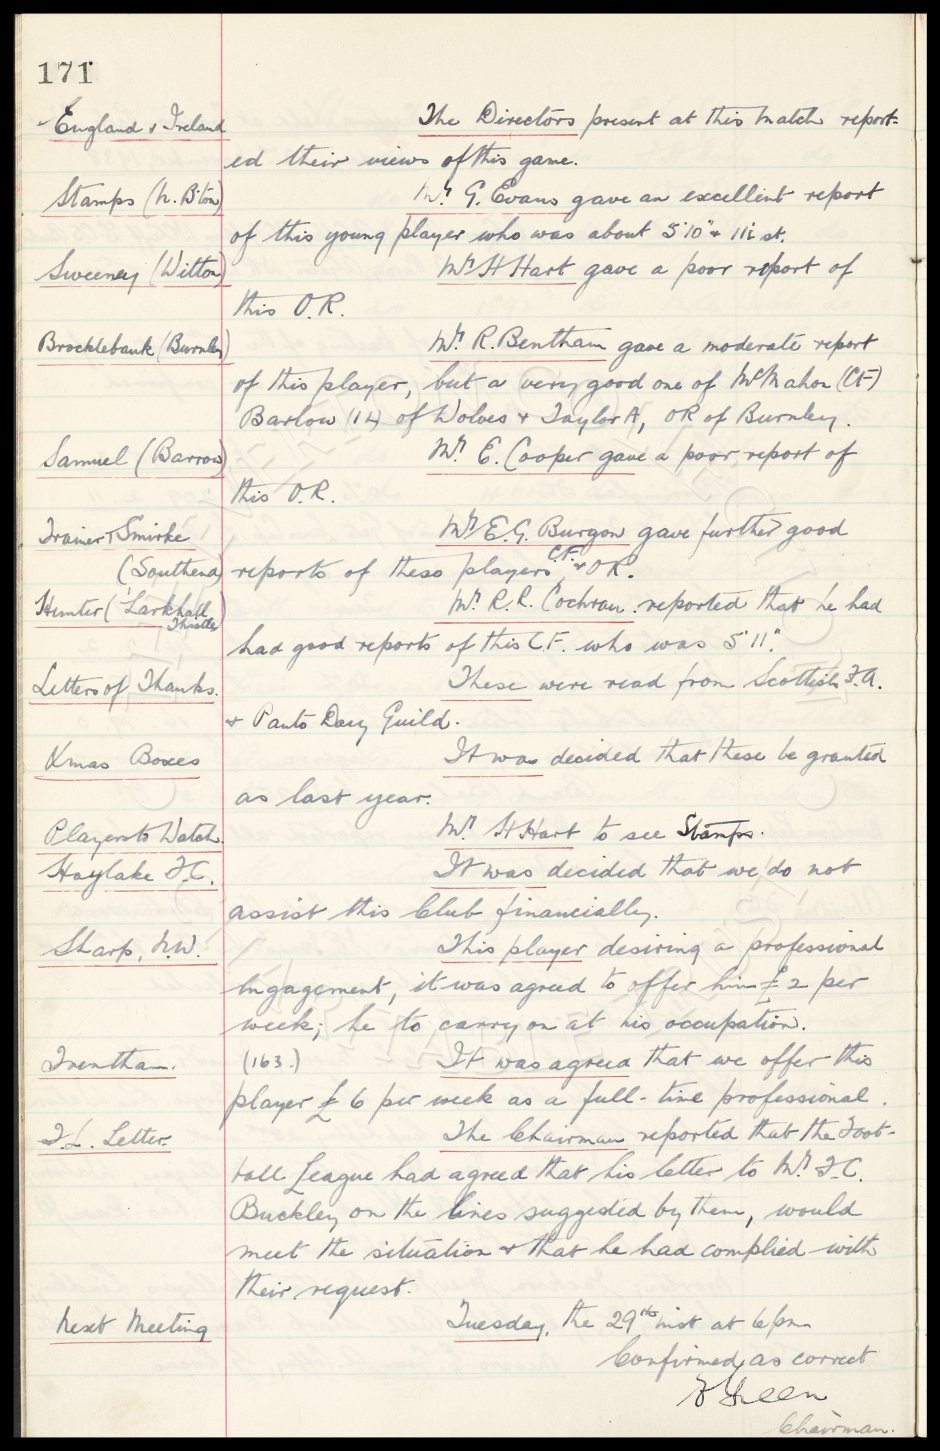 171
England & Ireland The Directors present at this match report=
ed their views of this game.
Stamps (N. B'ton) Mr. G. Evans gave an excellent report
of this young player who was about 5'10" & 11½ st.
Sweeney (Witton) Mr. H Hart gave a poor report of
this O.R.
Brocklebank (Burnley) Mr. R. Bentham gave a moderate report
of this player, but a very good one of McMahon (CF)
Barlow (IL) of Wolves & Taylor A, OR of Burnley.
Samuel (Barrow) Mr. E. Cooper gave a poor report of
this O.R.
Trainer & Smirke Mr. E. G. Burgon gave further good
(Southend) reports of these players, C.F. & OR.
Hunter (Larkhall Thistle) Mr. R. R. Cochran reported that he had
had good reports of this C.F. who was 5'11".
Letters of Thanks. These were read from Scottish F.A.
& Panto Day Guild.
Xmas Boxes It was decided that these be granted
as last year.
Players to Watch. Mr. H Hart to see Stamps.
Hoylake F.C. It was decided that we do not
assist this Club financially.
Sharp, N.W. This player desiring a professional
engagement, it was agreed to offer him £2 per
week; he to carry on at his occupation.
Trentham. (163.) It was agreed that we offer this
player £6 per week as a full-time professional.
F.L. Letter. The Chairman reported that the Foot-
ball League had agreed that his letter to Mr. F.C.
Buckley on the lines suggested by them, would
meet the situation & that he had complied with
their request.
Next Meeting Tuesday, the 29th inst at 6pm
Confirmed as correct
Green
Chairman.